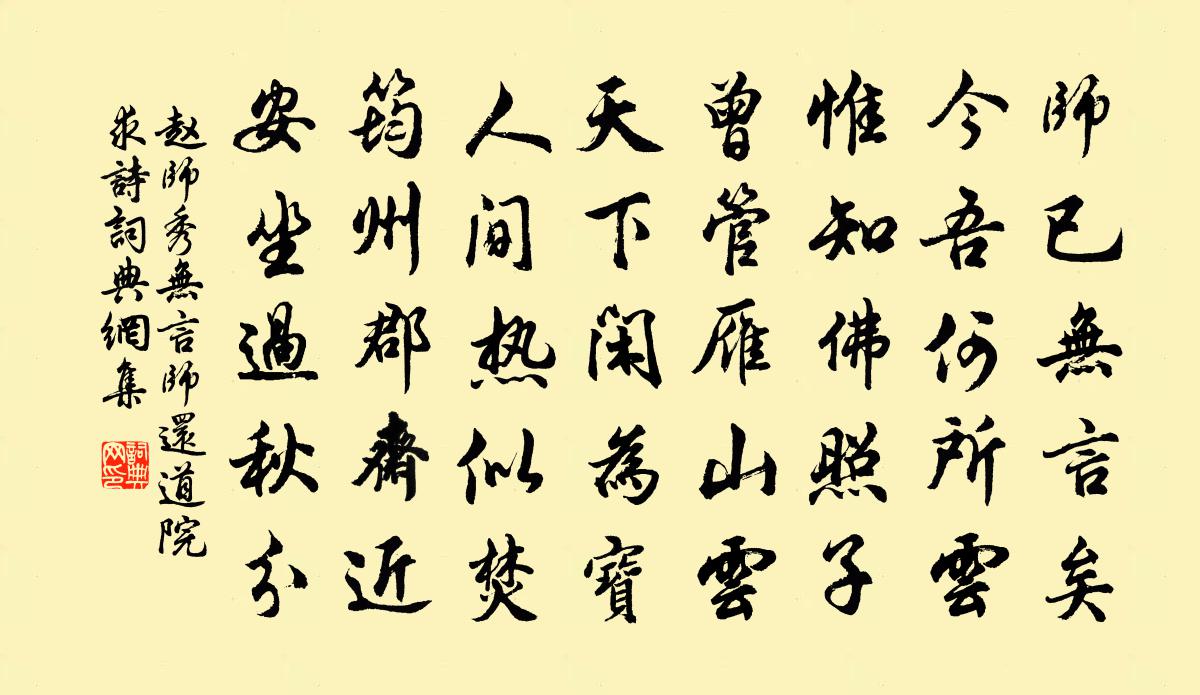 師已無言矣
今吾何所雲
惟知佛照子
曾管雁山雲
天下閑為寶
人间热似焚
筠州郡齋近
安坐過秋分
赵師秀無言師還道院
求詩詞典網集
詞典网印